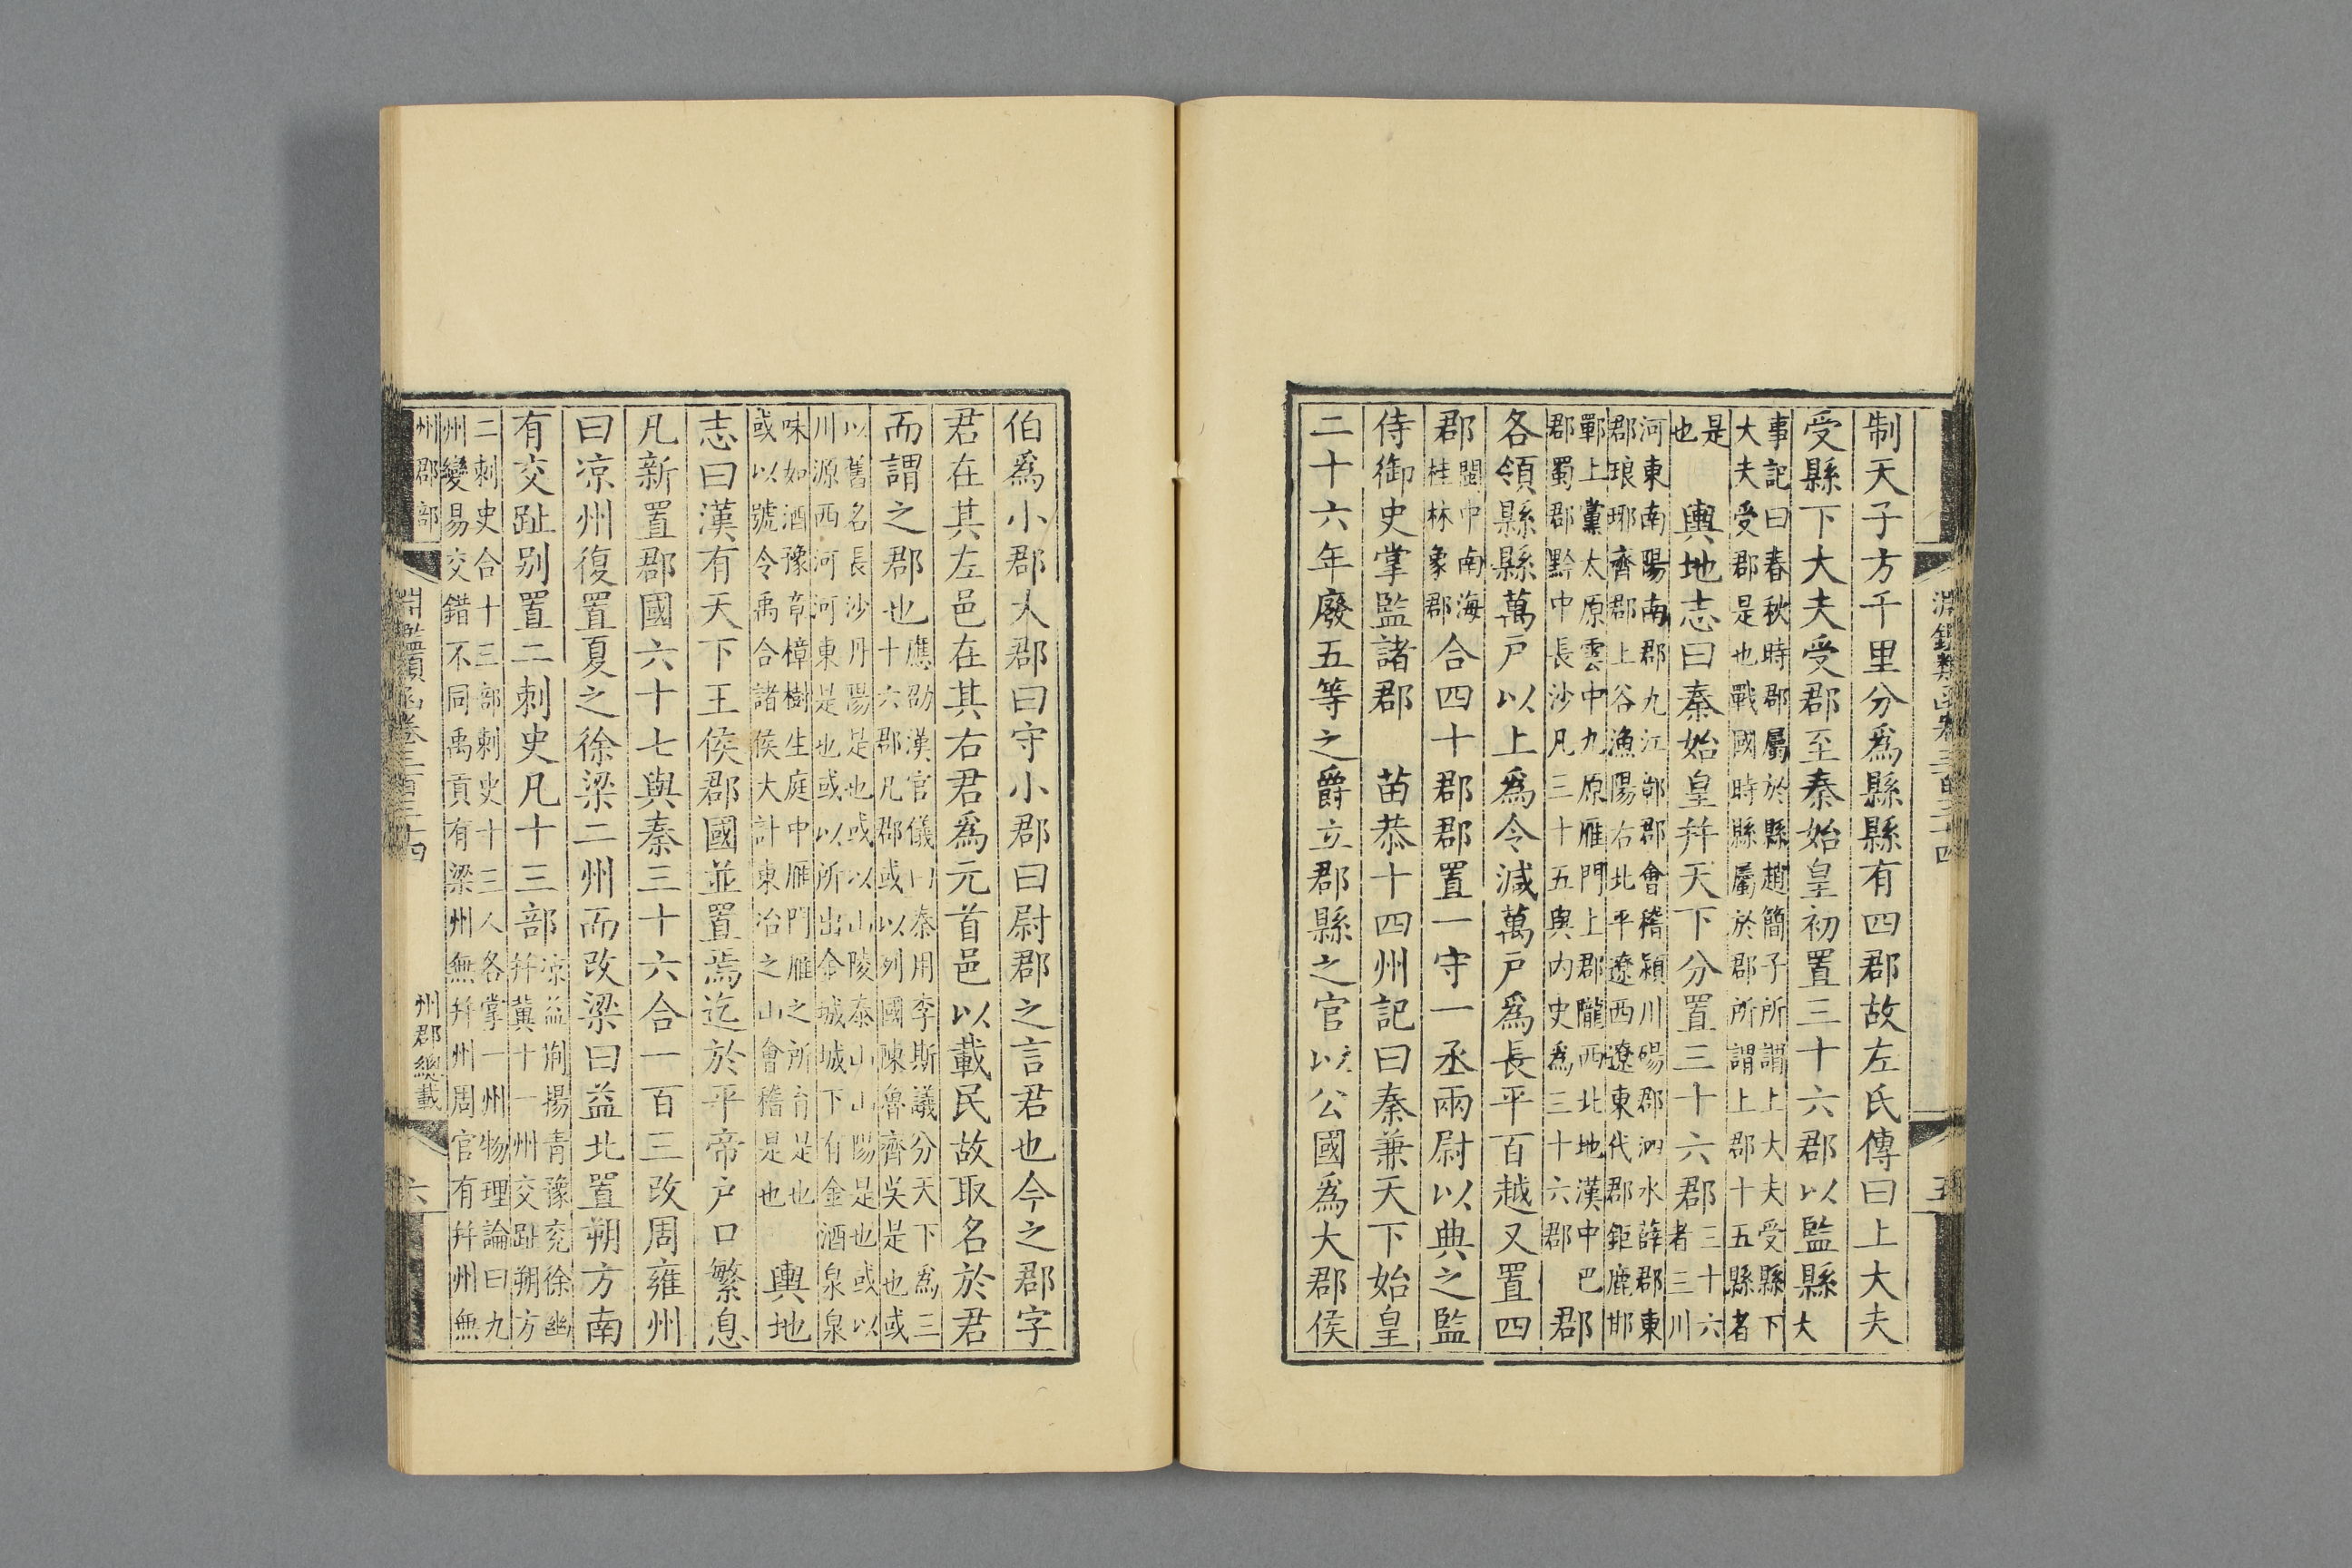 淵鑑類函卷三百三十四
五
制天子方千里分爲縣縣有四郡故左氏傳曰上大夫
受縣下大夫受郡至秦始皇初置三十六郡以監縣大
事記曰春秋時郡屬於縣趙簡子所謂上大夫受縣下
大夫受郡是也戰國時縣屬於郡所謂上郡十五縣者
是
也
輿地志曰秦始皇幷天下分置三十六郡三十六
者三川
河東南陽南郡九江鄣郡會稽潁川碭郡泗水薛郡東
郡琅琊齊郡上谷漁陽右北平遼西遼東代郡鉅鹿邯
鄲上黨太原雲中九原雁門上郡隴西北地漢中巴
郡蜀郡黔中長沙凡三十五與內史爲三十六郡
郡
各領縣縣萬戶以上爲令減萬戶爲長平百越又置四
郡閩中南海
桂林象郡
合四十郡郡置一守一丞兩尉以典之監
侍御史掌監諸郡　苗恭十四州記曰秦兼天下始皇
二十六年廢五等之爵立郡縣之官以公國爲大郡侯
伯爲小郡大郡曰守小郡曰尉郡之言君也今之郡字
君在其左邑在其右君爲元首邑以載民故取名於君
而謂之郡也應劭漢官儀曰秦用李斯議分天下爲三
十六郡凡郡或以列國陳魯齊吳是也或
以舊名長沙丹陽是也或以山陵泰山山陽是也或以
川源西河河東是也或以所出金城城下有金酒泉泉
味如酒豫章樟樹生庭中雁門雁之所育是也
或以號令禹合諸侯大計東冶之山會稽是也
輿地
志曰漢有天下王侯郡國並置焉迄於平帝戶口繁息
凡新置郡國六十七與秦三十六合一百三改周雍州
曰凉州復置夏之徐梁二州而改梁曰益北置朔方南
有交趾別置二刺史凡十三部凉益荆揚青豫兗徐幽
幷冀十一州交趾朔方
二刺史合十三部刺史十三人各掌一州物理論曰九
州變易交錯不同禹貢有梁州無幷州周官有幷州無
州郡部
淵鑑類函卷三百三十四
州郡總載
六